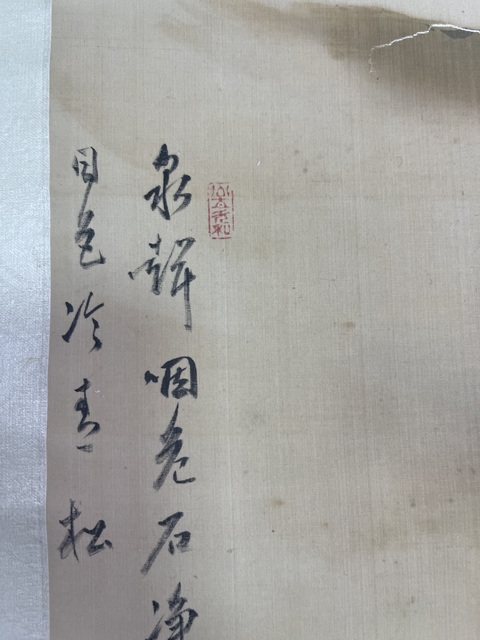 泉聲咽危石净
日色冷青松